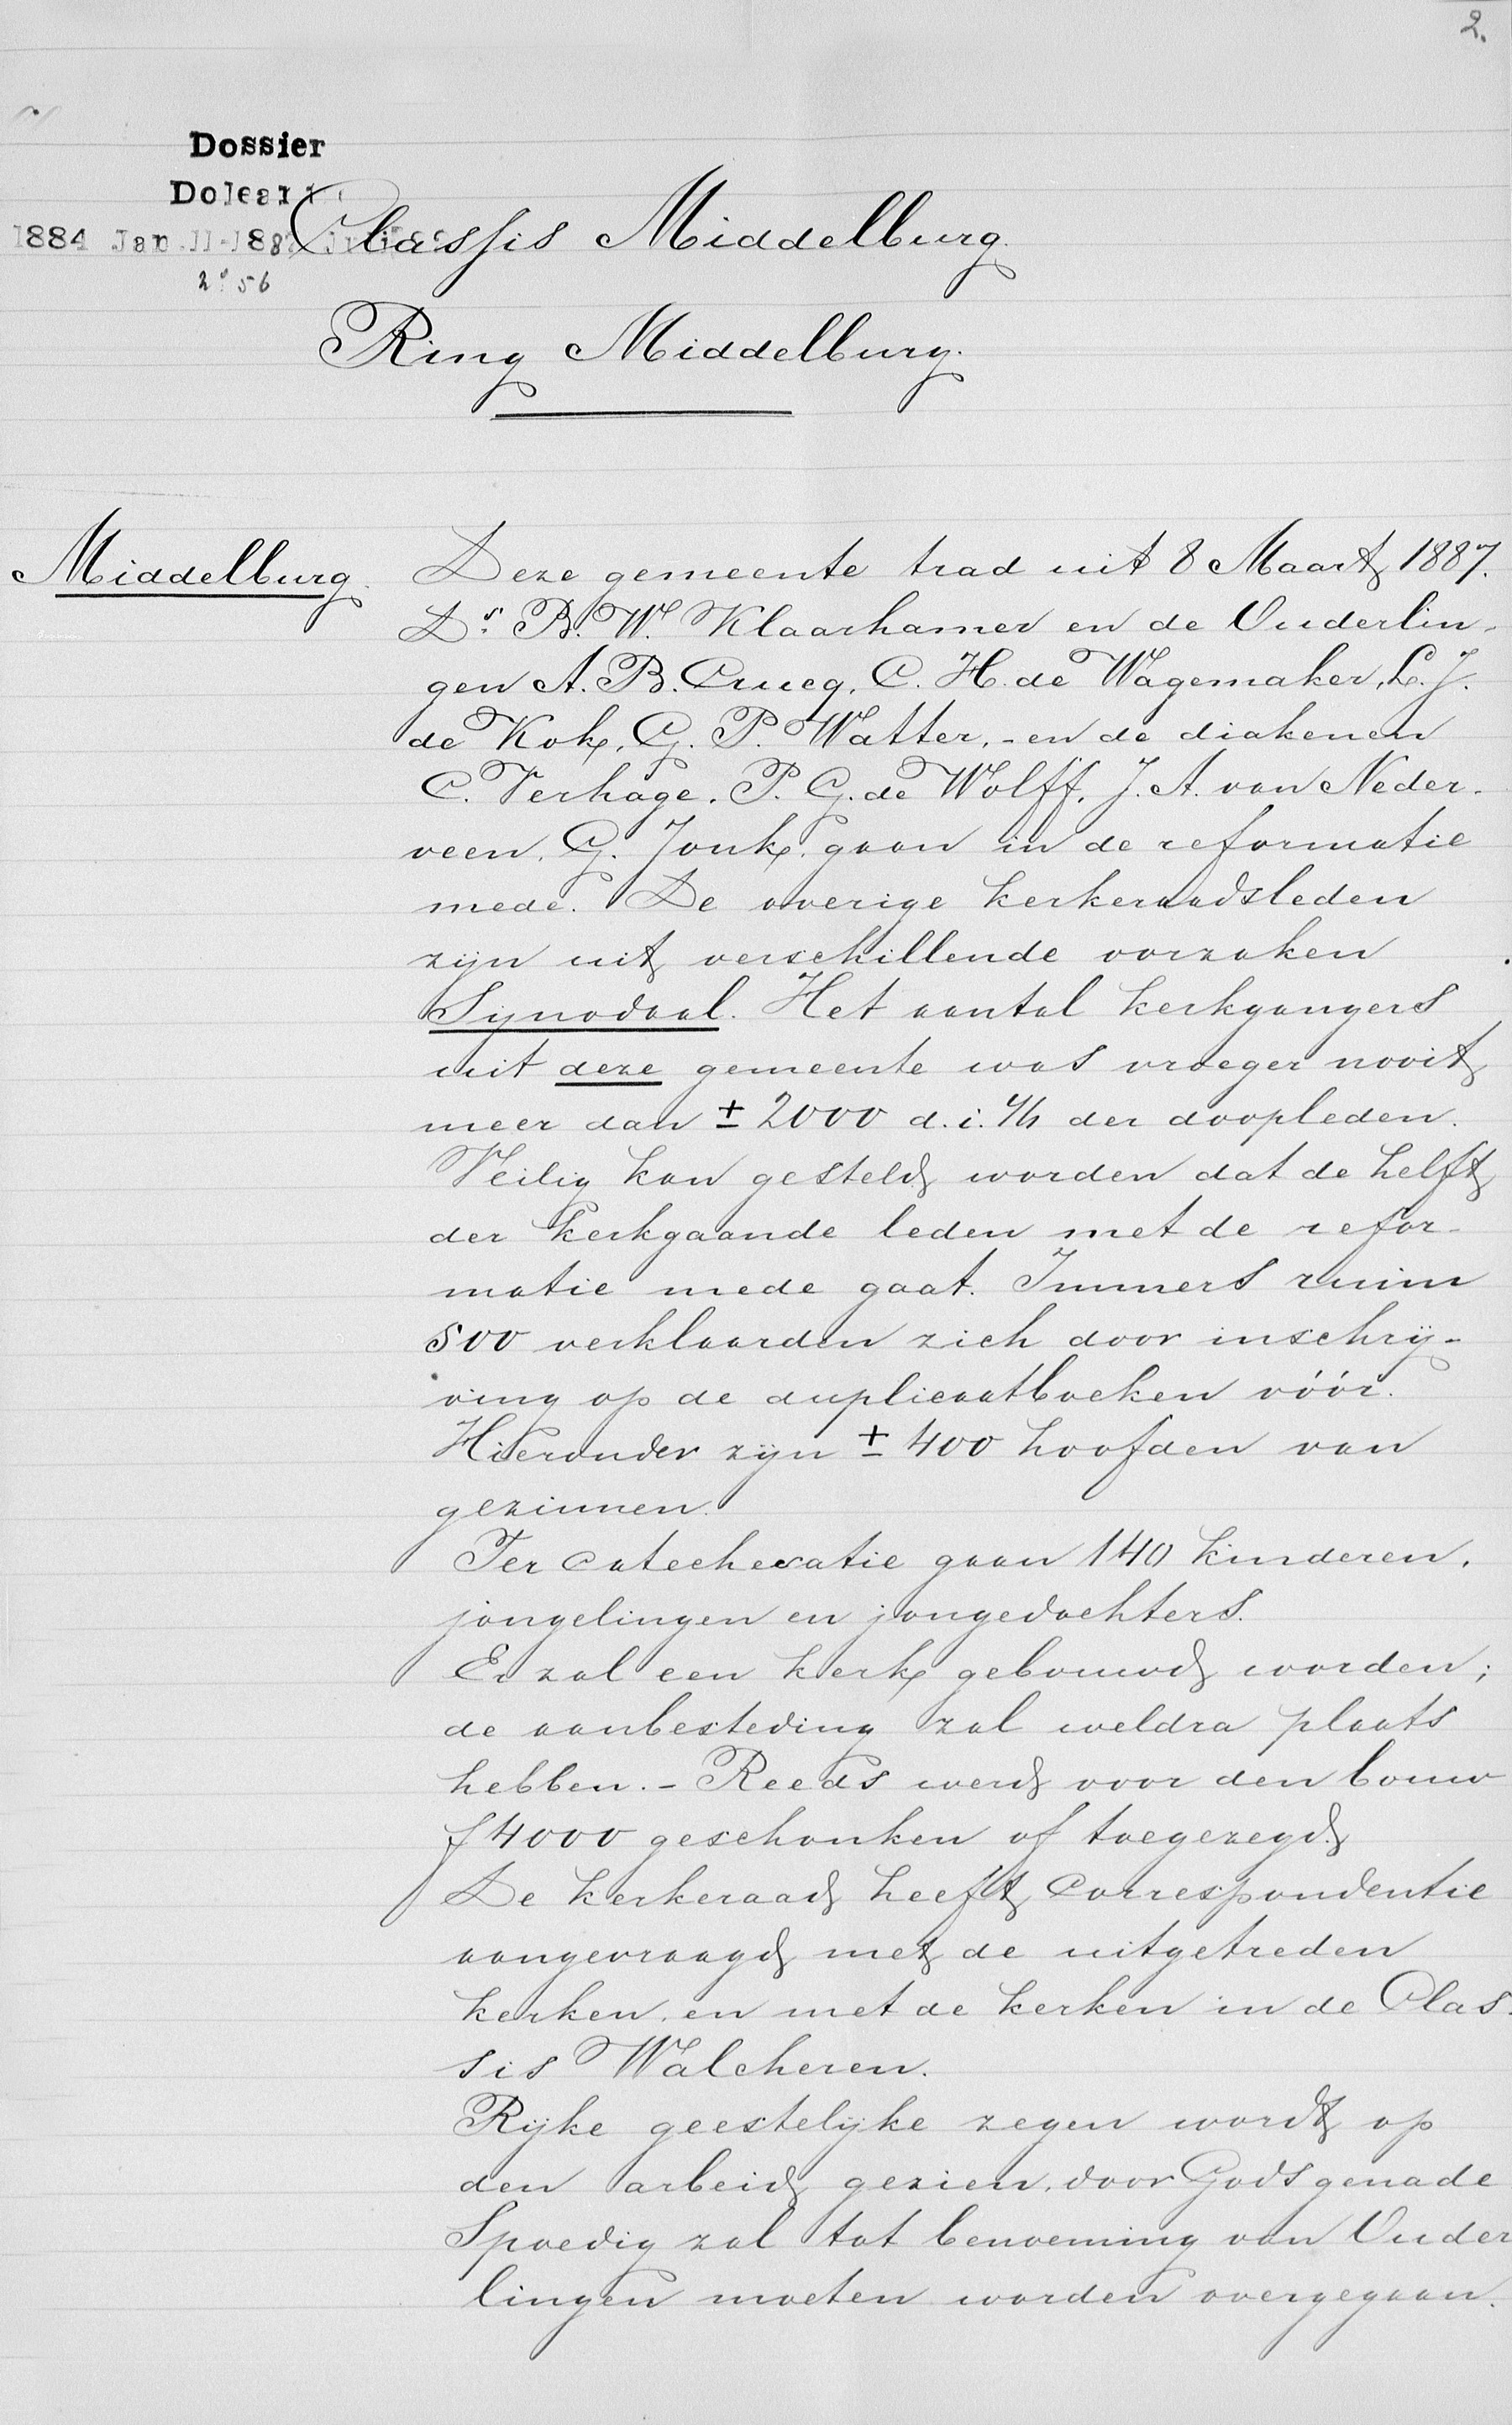 2.
Dossier
Doleantie
1884 Jan. 11-1887
2º 56
Classis Middelburg.
Ring Middelburg.
Middelburg.
Deze gemeente trad uit 8 Maart 1887.
Ds. B. W. Klaarhamer en de Ouderlin-
gen A. B. Crucq, C. H. de Wagemaker, L. J.
de Kok, G. P. Watter, - en de diakenen
C. Verhage, P. G. de Wolff, J. A. van Neder-
veen, G. Jonk, gaan in de reformatie
mede. De overige kerkeraadsleden
zijn uit verschillende oorzaken
Synodaal. Het aantal kerkgangers
uit deze gemeente was vroeger nooit
meer dan ± 2000 d. i. der doopleden.
Veilig kan gesteld worden dat de helft
der kerkgaande leden met de refor-
matie mede gaat. Immers ruim
500 verklaarden zich door inschrij-
ving op de duplicaatboeken vóór.
Hieronder zijn ± 400 hoofden van
gezinnen.
Ter catechesatie gaan 140 kinderen,
jongelingen en jongedochters.
Er zal een kerk gebouwd worden;
de aanbesteding zal weldra plaats
hebben. - Reeds werd voor den bouw
f 4000 geschonken of toegezegd.
De kerkeraad heeft correspondentie
aangevraagd met de uitgetreden
kerken, en met de kerken in de Clas-
sis Walcheren.
Rijke geestelijke zegen wordt op
den arbeid gezien, door Gods genade
Spoedig zal tot benoeming van Ouder
lingen moeten worden overgegaan.